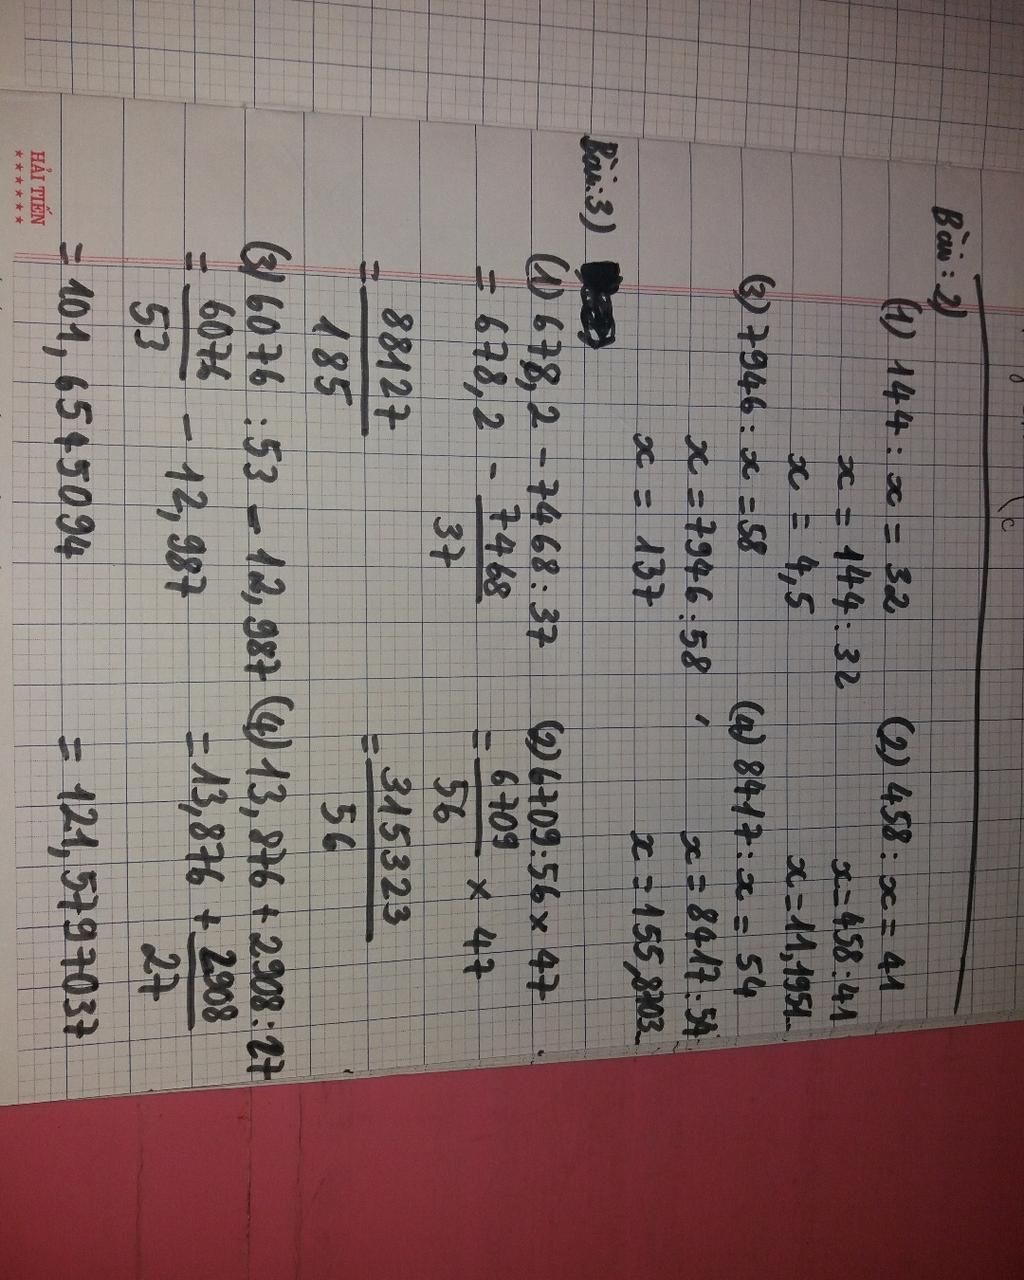 Bài: 2)
(1) 144 : x = 32
x = 144 : 32
x = 4,5
(2) 458 : x = 41
x = 458 : 41
x = 11,1951
(3) 7946 : x = 58
x = 7946 : 58
x = 137
(4) 8417 : x = 54
x = 8417 : 54
x = 155,8703
Bài: 3)
(1) 678,2 - 7468 : 37
= 678,2 - 7468
37
= 88127
185
(2) 6709 : 56 x 47
= 6709 x 47
56
= 315323
56
(3) 6076 : 53 - 12,987
= 6076 - 12,987
53
= 101,6545094
(4) 13,876 + 2908 : 27
= 13,876 + 2908
27
= 121,5797037
HẢI TIẾN